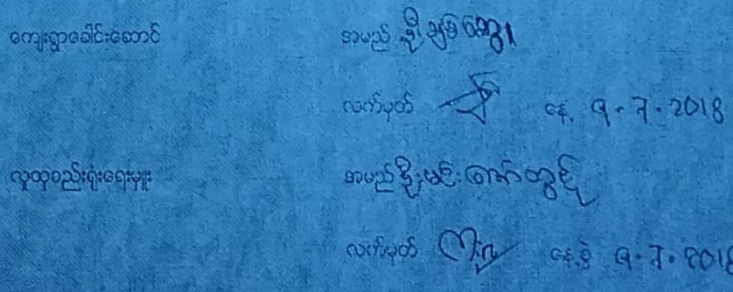 ကျေးရွာခေါင်းဆောင် အမည် ဦးချစ်ဆွေ
လက်မှတ် နေ့ ၅.7.2018
လူထုစည်းရုံးရေးမှူး အမည် ဦးမင်းဇော်ထွန်း
လက်မှတ် နေ့စွဲ 9.7.2018